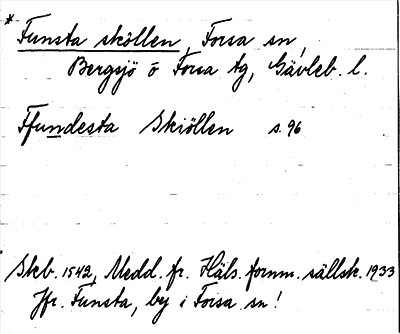 * Funsta sköllen, Forsa sn,
Bergsjö o Forsa tg, Gävleb. l.
Ffundesta Skiöllen s. 96
Skb. 1542, Medd. fr. Häls. fornm. sällsk. 1933
Jfr. Funsta, by i Forsa sn!